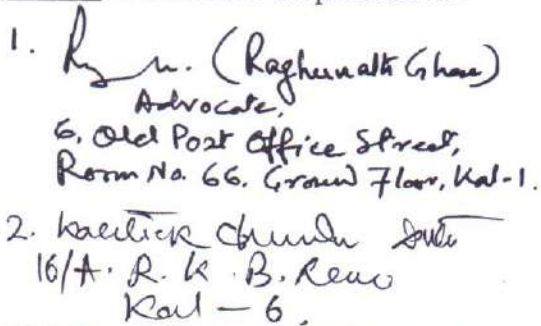 1. (Raghunath Ghose)
Advocate,
6, Old Post Office Street,
Room No. 66. Ground Floor, Kol-1.
2. Kartick Chunder
16/A. R. K. B. Lane
Kol - 6.